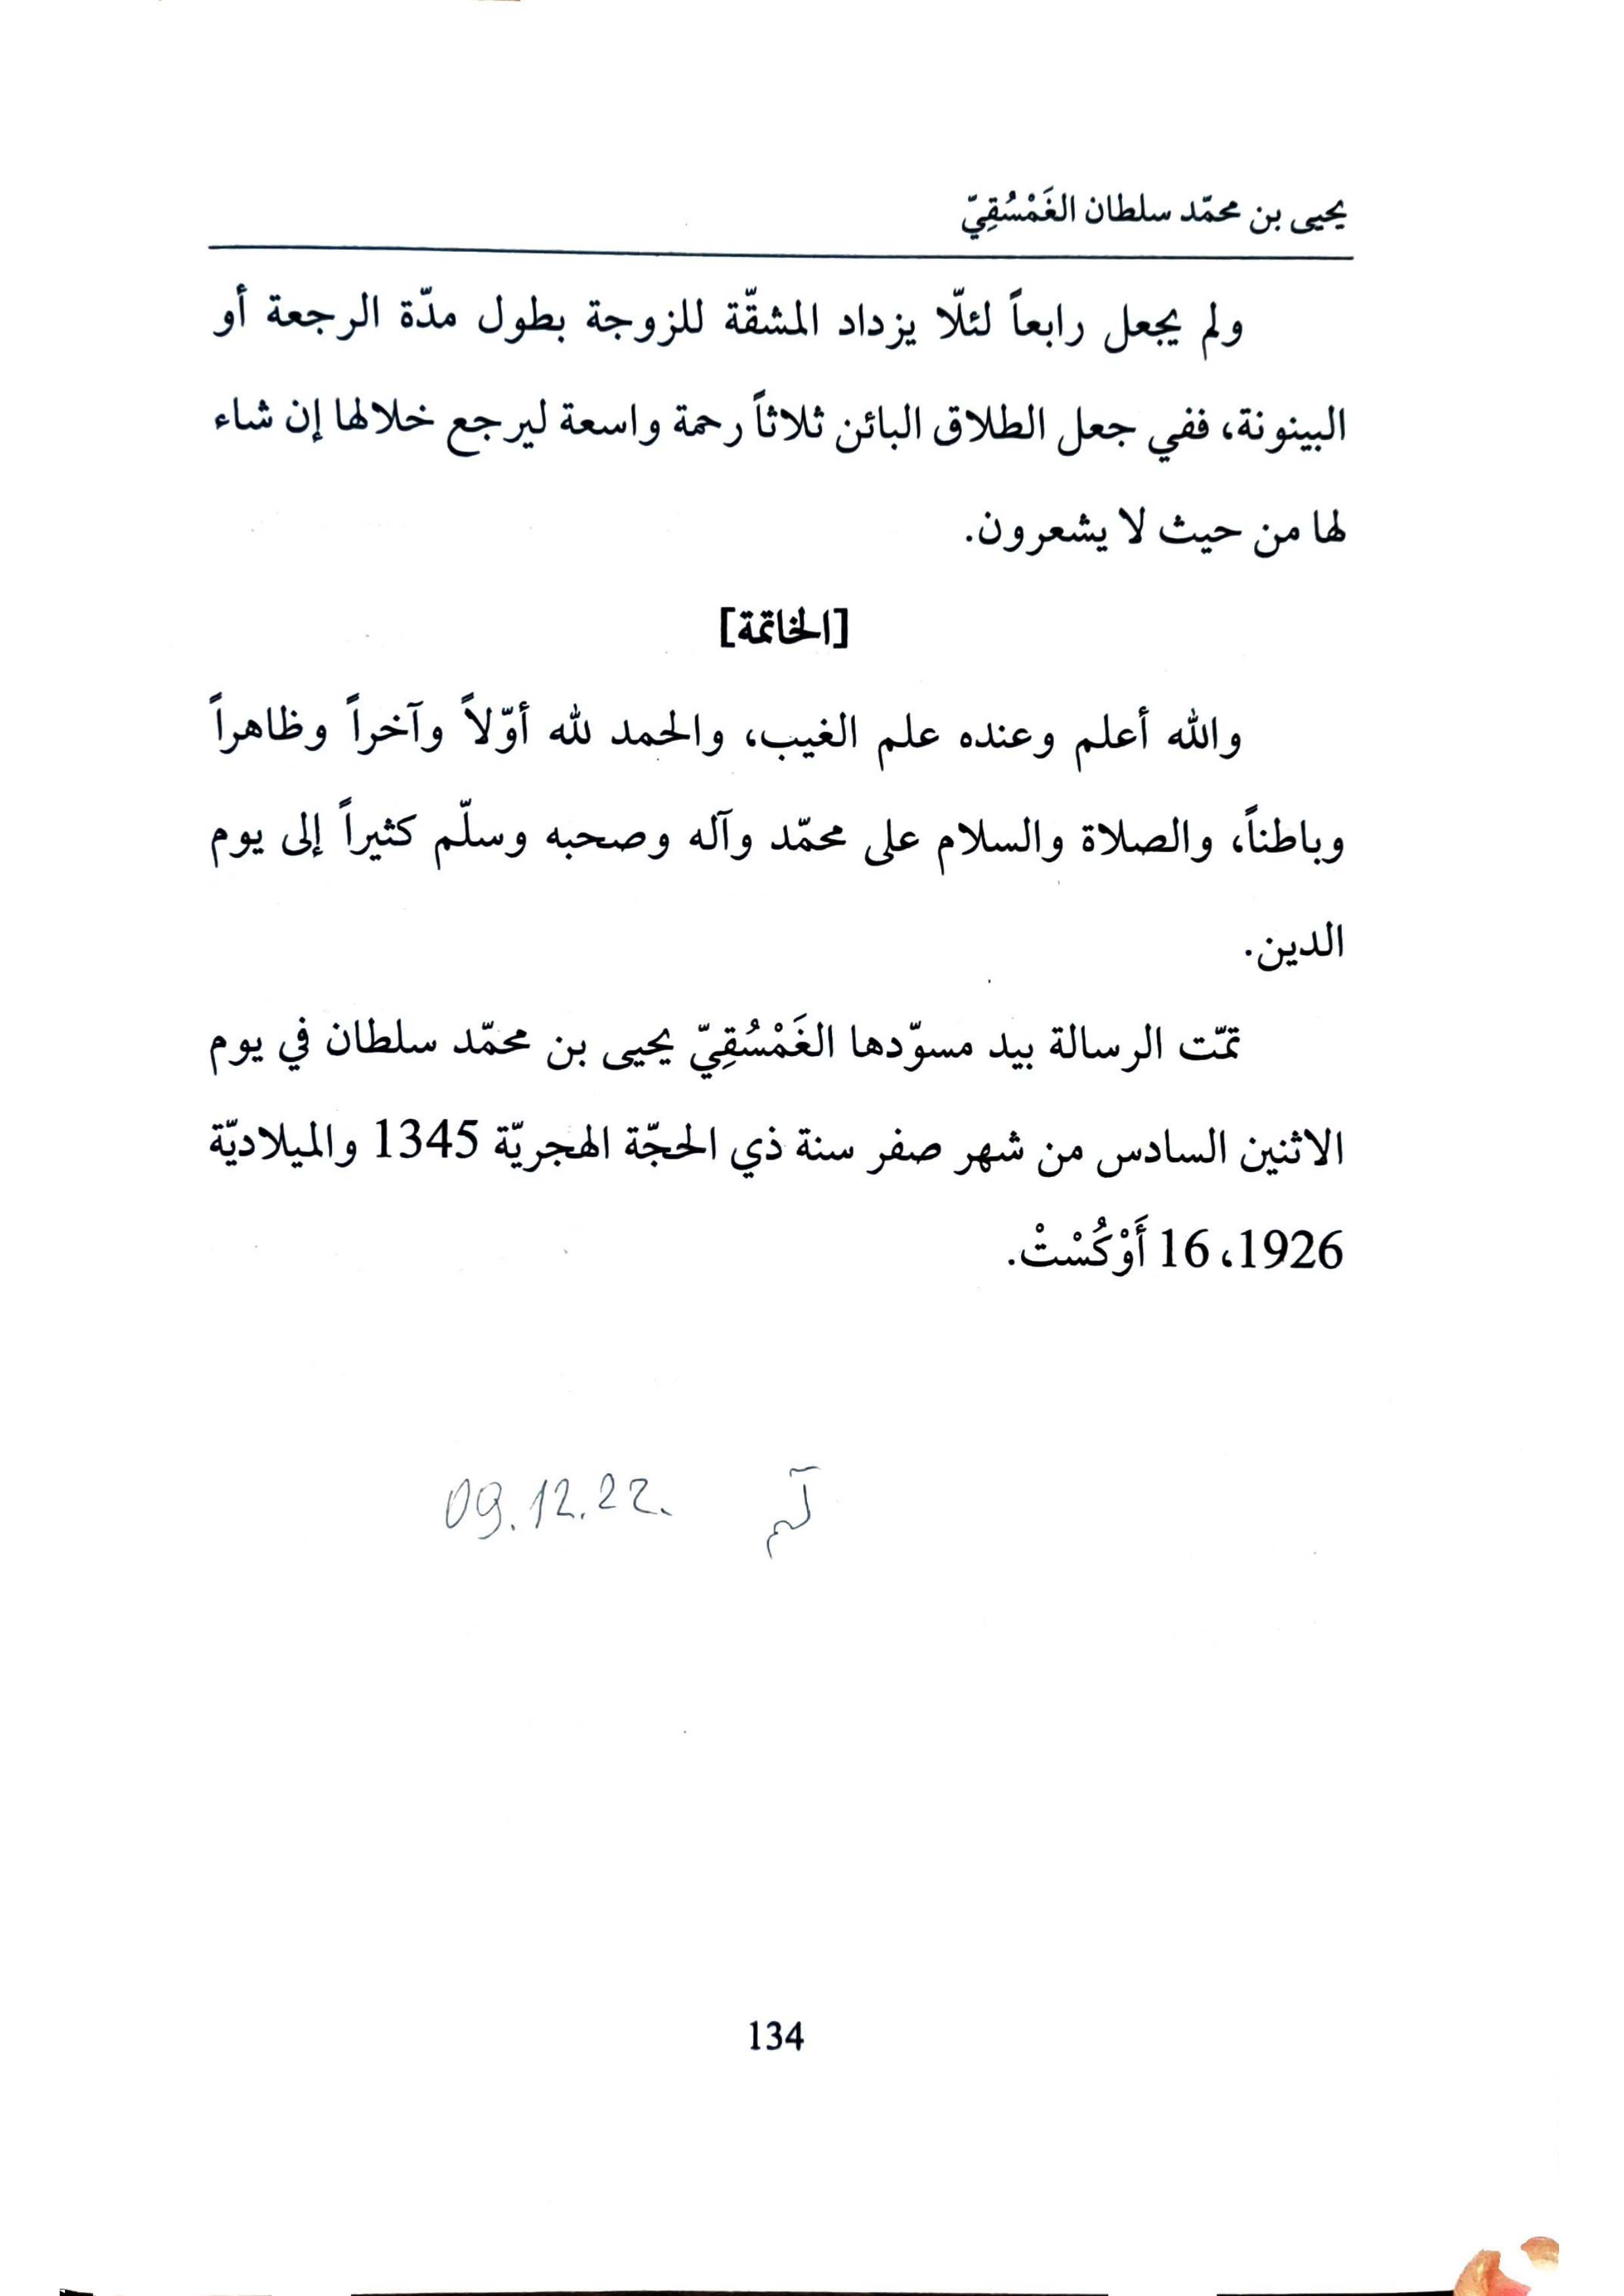 يحيى بن محمّد سلطان الغَمْسُقِيّ
ولم يجعل رابعاً لئلّا يزداد المشقّة للزوجة بطول مدّة الرجعة أو
البينونة، ففي جعل الطلاق البائن ثلاثاً رحمة واسعة ليرجع خلالها إن شاء
لها من حيث لا يشعرون.
[الخاتمة]
والله أعلم وعنده علم الغيب، والحمد لله أوّلاً وآخراً وظاهراً
وباطناً، والصلاة والسلام على محمّد وآله وصحبه وسلّم كثيراً إلى يوم
الدين.
تمّت الرسالة بيد مسوّدها الغَمْسُقِيّ يحيى بن محمّد سلطان في يوم
الاثنين السادس من شهر صفر سنة ذي الحجّة الهجريّة 1345 والميلاديّة
1926، 16 أَوْكُسْتْ.
09.12.22.
134